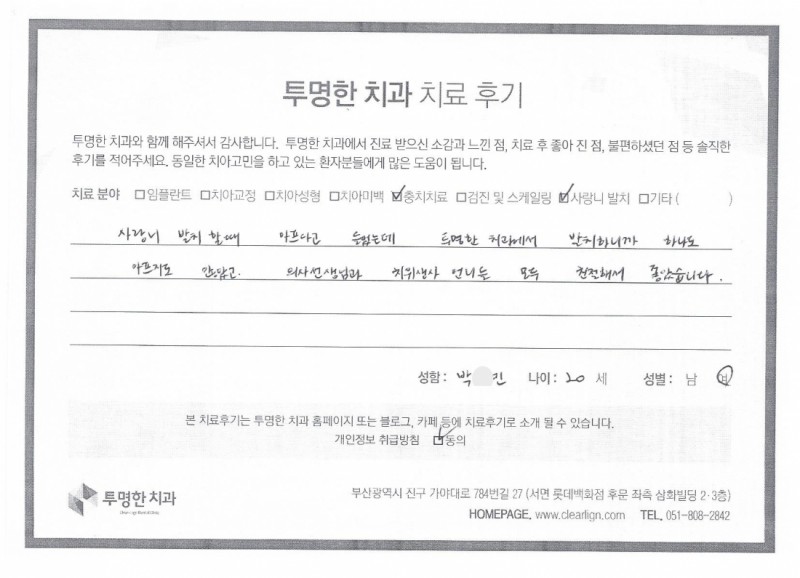 투명한 치과 치료 후기
투명한 치과와 함께 해주셔서 감사합니다. 투명한 치과에서 진료 받으신 소감과 느낀 점, 치료 후 좋아 진 점, 불편하셨던 점 등 솔직한
후기를 적어주세요. 동일한 치아고민을 하고 있는 환자분들에게 많은 도움이 됩니다.
치료 분야 □임플란트 □치아교정 □치아성형 □치아미백 ☑충치치료 □검진 및 스케일링 ☑사랑니 발치 □기타 ( )
사랑니 발치 할때 아프다고 들었는데 투명한 치과에서 발치하니까 하나도
아프지도 않았고. 의사선생님과 치위생사 언니들 모두 친절해서 좋았습니다.
성함 : 박 진 나이 : 20 세 성별 : 남 여
본 치료후기는 투명한 치과 홈페이지 또는 블로그, 카페 등에 치료후기로 소개 될 수 있습니다.
개인정보 취급방침 ☑동의
투명한 치과
부산광역시 진구 가야대로 784번길 27 (서면 롯데백화점 후문 좌측 삼화빌딩 2·3층)
HOMEPAGE. www.clearlign.com TEL. 051-808-2842